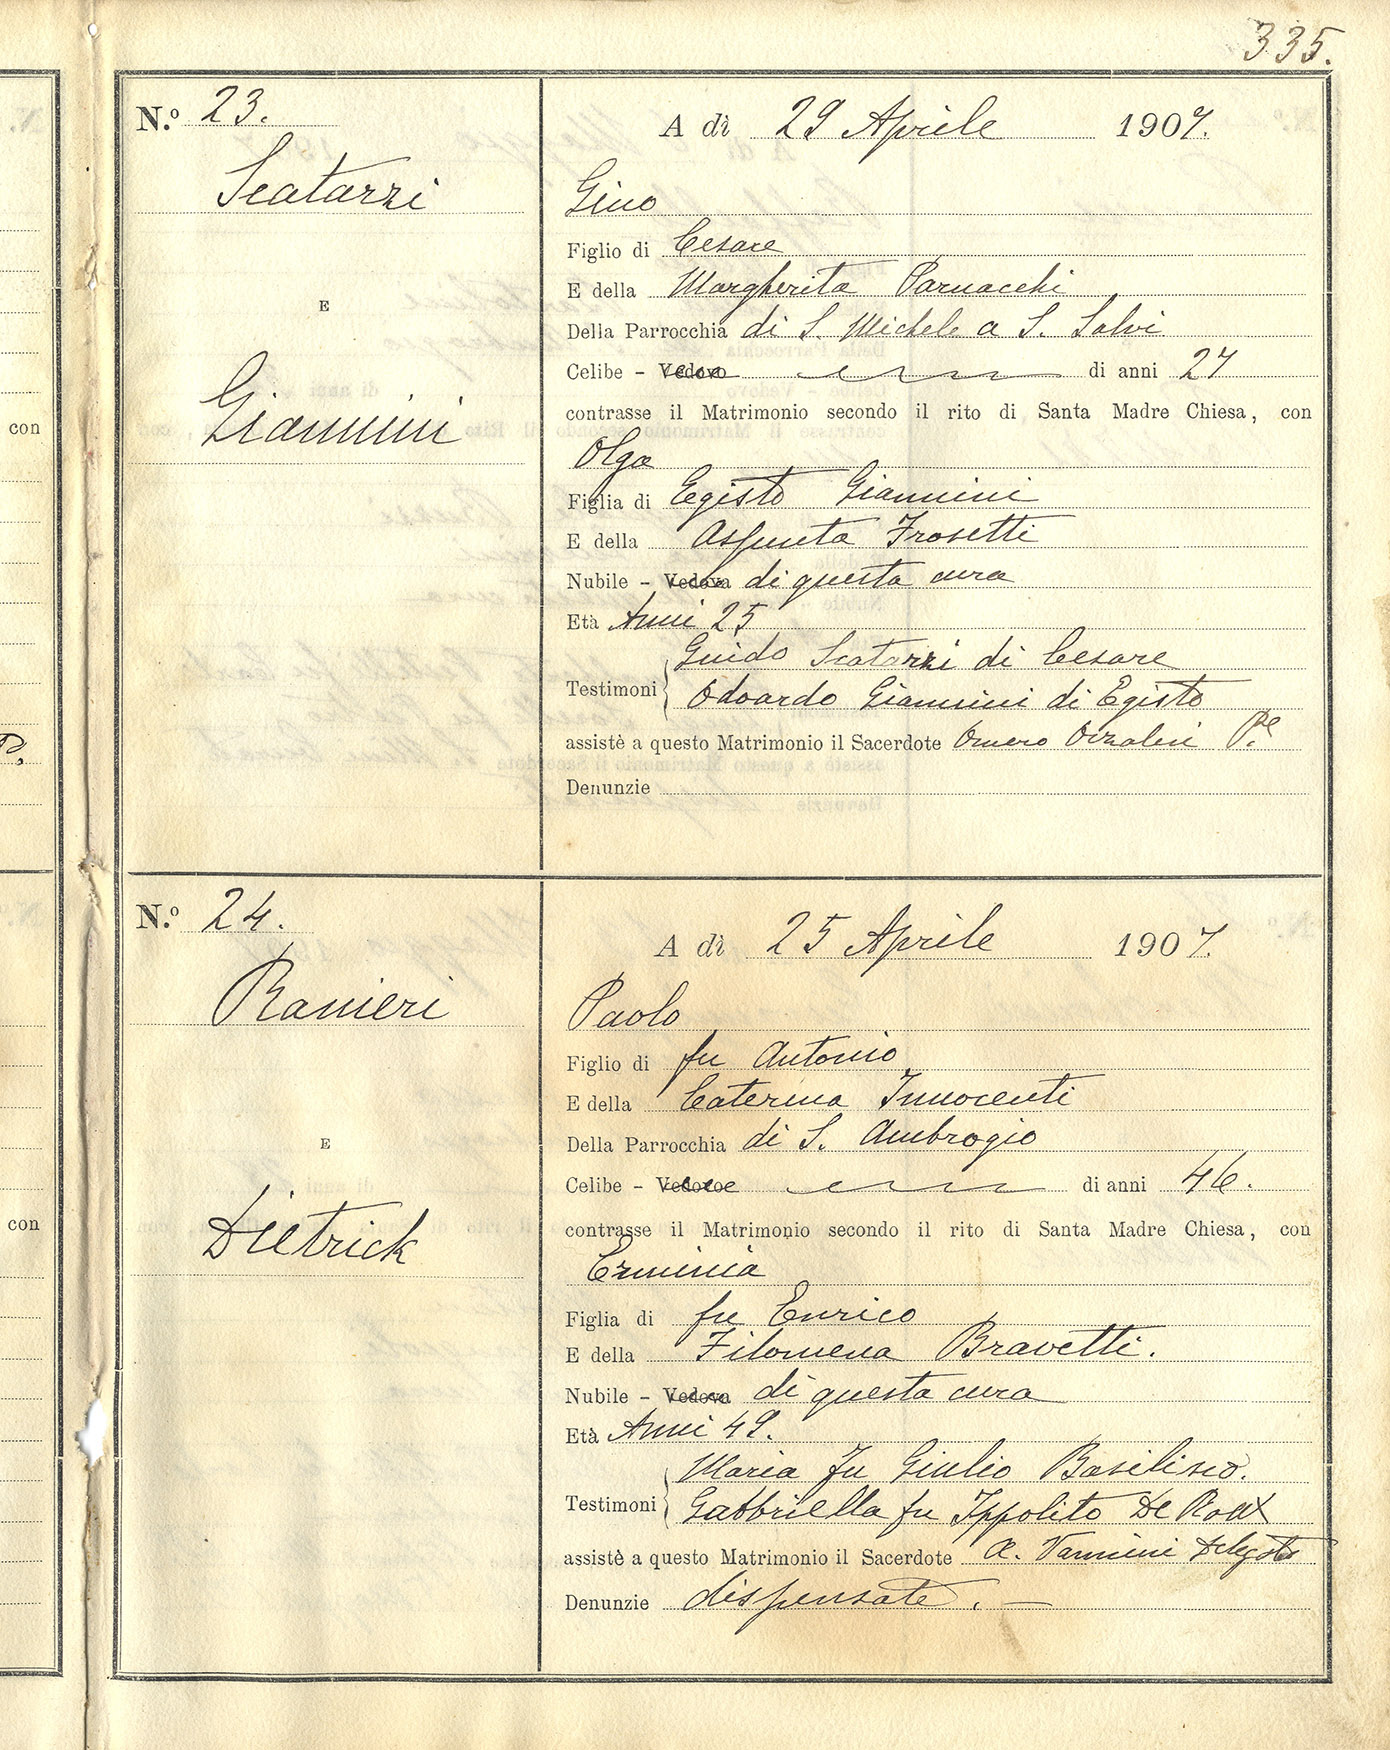 335.
N.º 23.
Scatarzi
E
Giannini
A dì 29 Aprile 1907.
Gino
Figlio di Cesare
E della Margherita Parnacchi
Della Parrocchia di S. Michele a S. Salvi
Celibe - Vedovo di anni 27
contrasse il Matrimonio secondo il rito di Santa Madre Chiesa, con
Olga
Figlia di Egisto Giannini
E della Assunta Frosetti
Nubile - Vedova di questa cura
Età Anni 25
Guido Scatarzi di Cesare
Testimoni
Odoardo Giannini di Egisto
assistè a questo Matrimonio il Sacerdote Omero Orzalesi P.e
Denunzie
N.º 24.
Ranieri
E
Dietrick
A dì 25 Aprile 1907.
Paolo
Figlio di fu Antonio
E della Caterina Innocenti
Della Parrocchia di S. Ambrogio
Celibe - Vedovo di anni 46.
contrasse il Matrimonio secondo il rito di Santa Madre Chiesa, con
Erminia
Figlia di fu Enrico
E della Filomena Bravetti.
Nubile - Vedova di questa cura
Età Anni 49.
Maria fu Giulio Basilisco.
Testimoni
Gabbriella fu Ippolito De Roux
assistè a questo Matrimonio il Sacerdote A. Vannini Delegato
Denunzie dispensate. —
con
P.
con